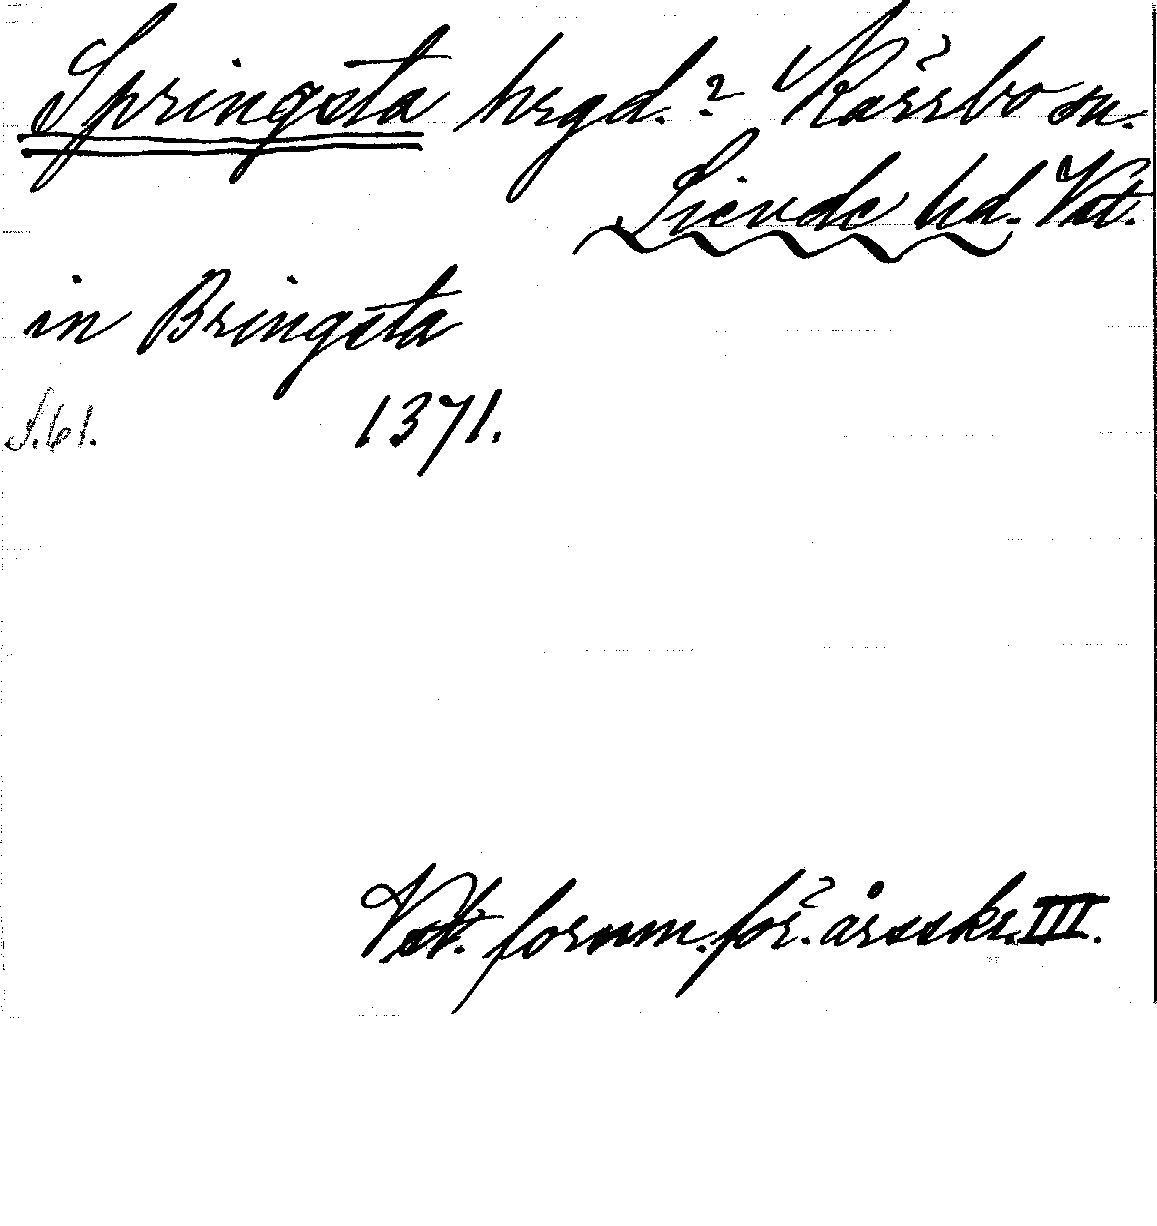 Springsta hrgd.? Kärrbo sn.
Siende hd. Vst.
in Bringsta
S. 61. 1371.
Vst. fornm. för. årsskr. III.